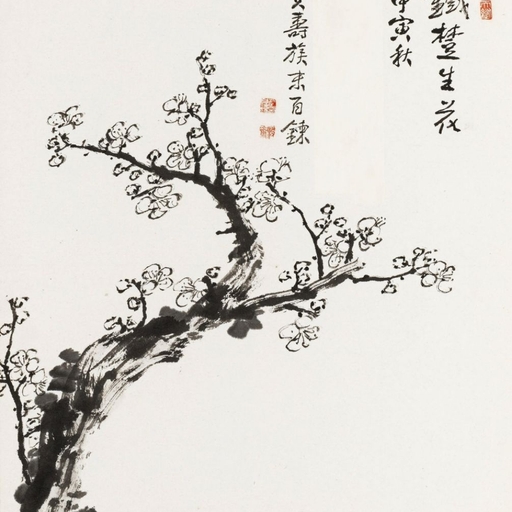 鐵楚生花
甲寅秋
壽族末百鍊